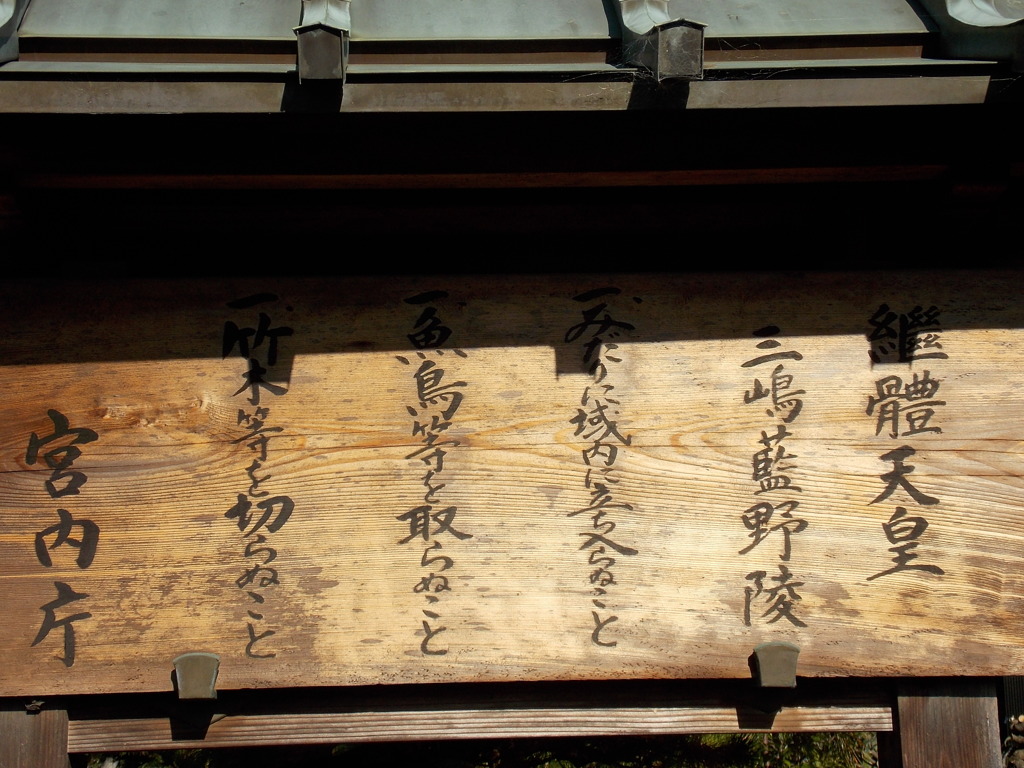 繼體天皇
三嶋藍野陵
一、みだりに域内に立ち入らぬこと
一、魚鳥等を取らぬこと
一、竹木等を切らぬこと
宮内庁